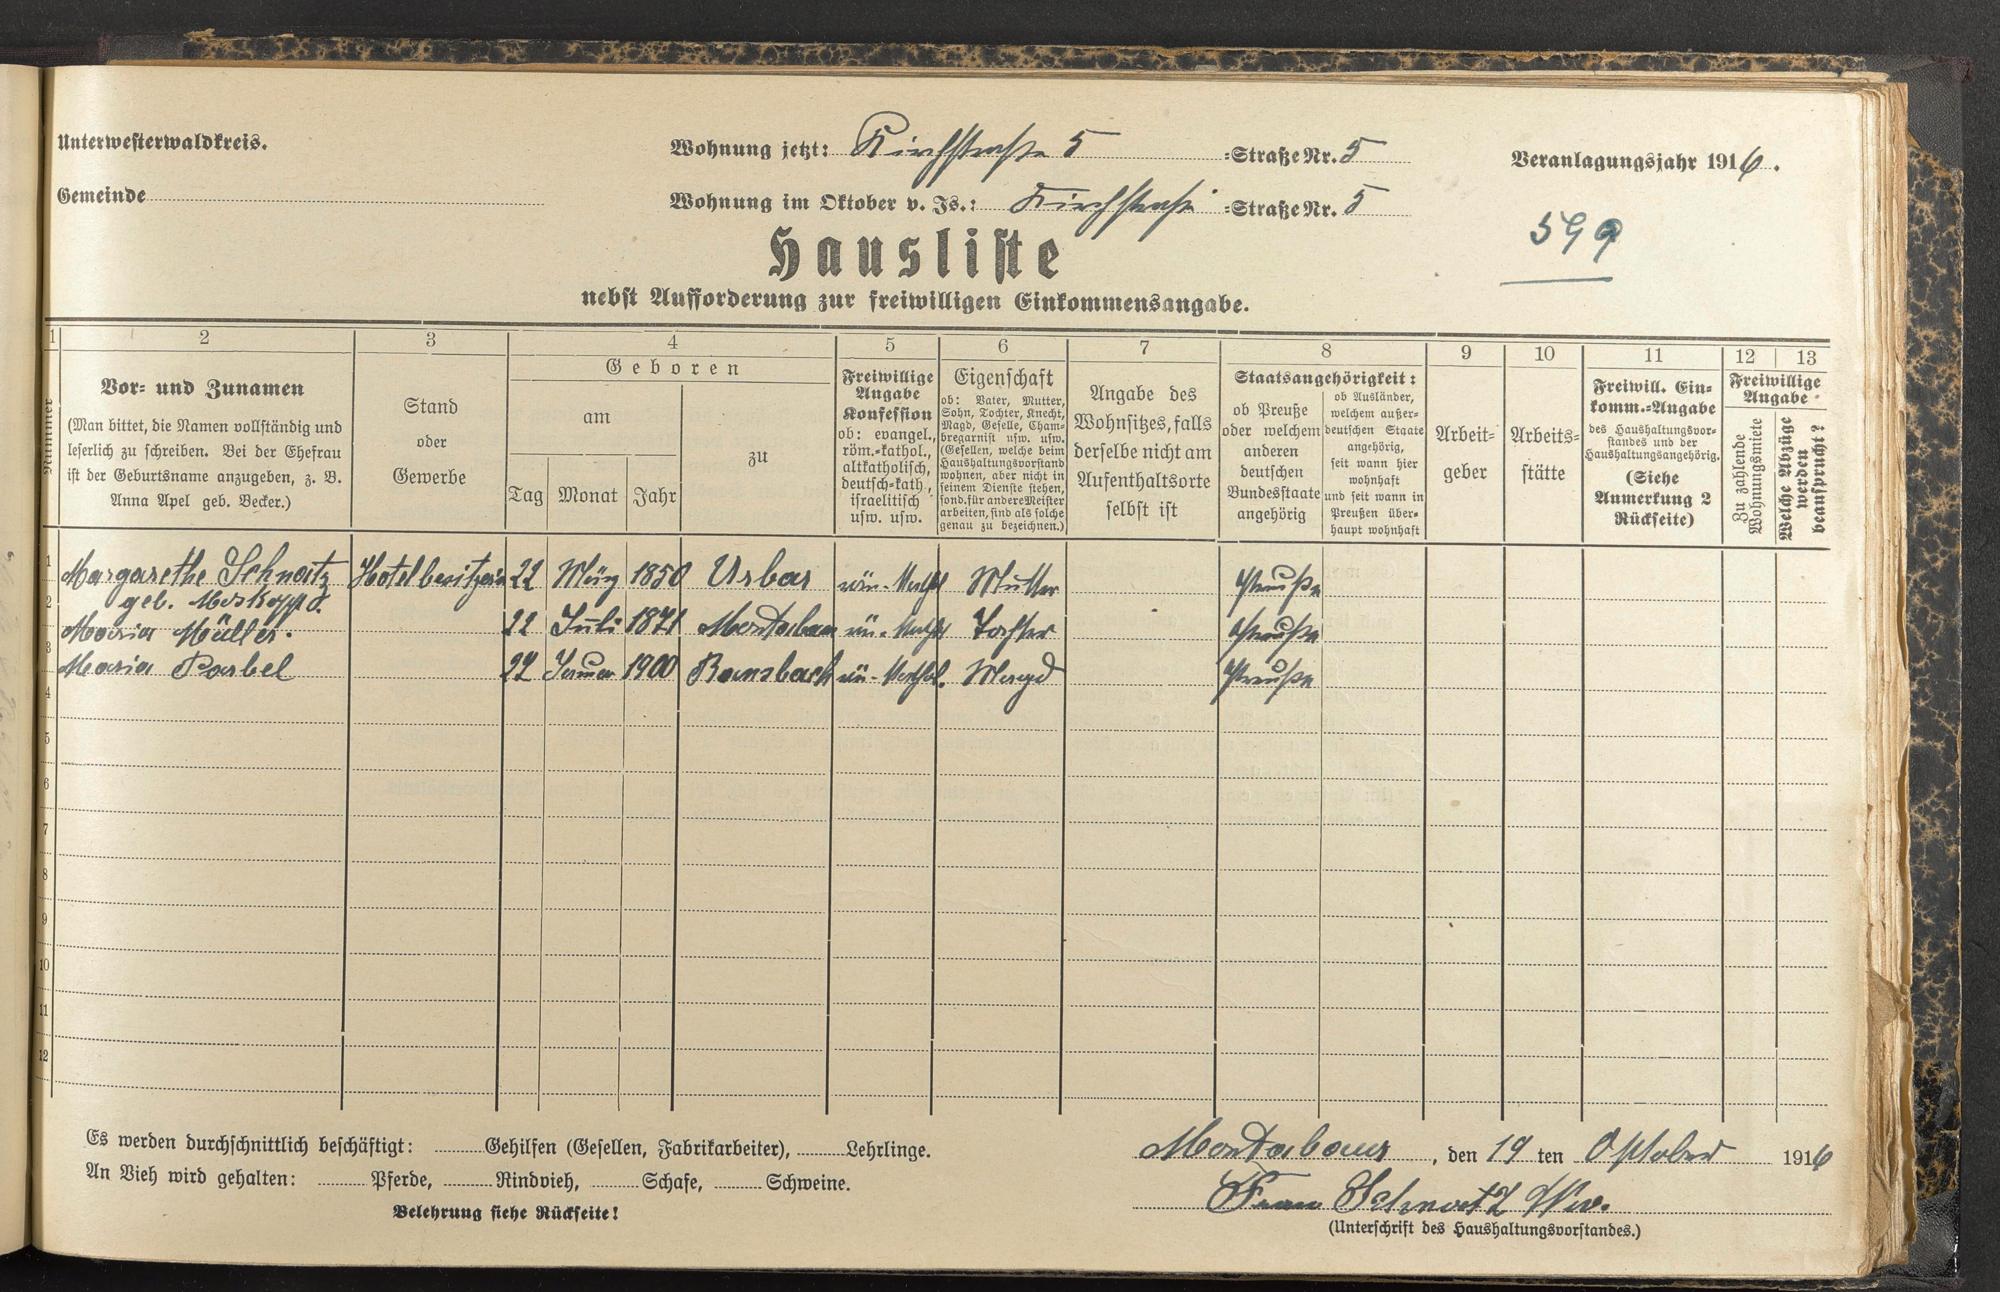 Unterwesterwaldkreis.
Wohnung jetzt: Kirchstraße 5 -Straße Nr. 5
Veranlagungsjahr 1916.
Gemeinde
Wohnung im Oktober v. Js.: Kirchstraße -Straße Nr. 5
599
Hausliste
nebst Aufforderung zur freiwilligen Einkommensangabe.
1 2 3 4 5 6 7 8 9 10 11 12 13
Nummer
Vor- und Zunamen
(Man bittet, die Namen vollständig und
leserlich zu schreiben. Bei der Ehefrau
ist der Geburtsname anzugeben, z. B.
Anna Apel geb. Becker.)
Stand
oder
Gewerbe
Geboren
am
Tag Monat Jahr
zu
Freiwillige
Angabe
Konfession
ob: evangel.,
röm.-kathol.,
altkatholisch,
deutsch-kath.,
israelitisch
usw. usw.
Eigenschaft
ob: Vater, Mutter,
Sohn, Tochter, Knecht,
Magd, Geselle, Cham-
bregarnist usw. usw.
(Gesellen, welche beim
Haushaltungsvorstand
wohnen, aber nicht in
seinem Dienste stehen,
sond. für andere Meister
arbeiten, sind als solche
genau zu bezeichnen.)
Angabe des
Wohnsitzes, falls
derselbe nicht am
Aufenthaltsorte
selbst ist
Staatsangehörigkeit:
ob Preuße
oder welchem
anderen
deutschen
Bundesstaate
angehörig
ob Ausländer,
welchem außer-
deutschen Staate
angehörig,
seit wann hier
wohnhaft
und seit wann in
Preußen über-
haupt wohnhaft
Arbeit-
geber
Arbeits-
stätte
Freiwill. Ein-
komm.-Angabe
des Haushaltungsvor-
standes und der
Haushaltungsangehörig.
(Siehe
Anmerkung 2
Rückseite)
Freiwillige
Angabe
Zu zahlende
Wohnungsmiete
Welche Abzüge
werden
beansprucht?
1 Margarethe Schwatz Hotelbesitzerin 22 März 1850 Urbar röm.-kathol. Mutter Preuße
geb. Moskopp
2 Maria Müller. 22 Juli 1871 Montabaur röm.-kathol. Tochter Preuße
3 Maria Parbel 22 Januar 1900 Ransbach röm.-kathol. Magd Preuße
4
5
6
7
8
9
10
11
12
Es werden durchschnittlich beschäftigt: Gehilfen (Gesellen, Fabrikarbeiter), Lehrlinge.
An Vieh wird gehalten: Pferde, Rindvieh, Schafe, Schweine.
Belehrung siehe Rückseite!
Montabaur, den 19 ten Oktober 1916
Frau Schwatz Ww.
(Unterschrift des Haushaltungsvorstandes.)